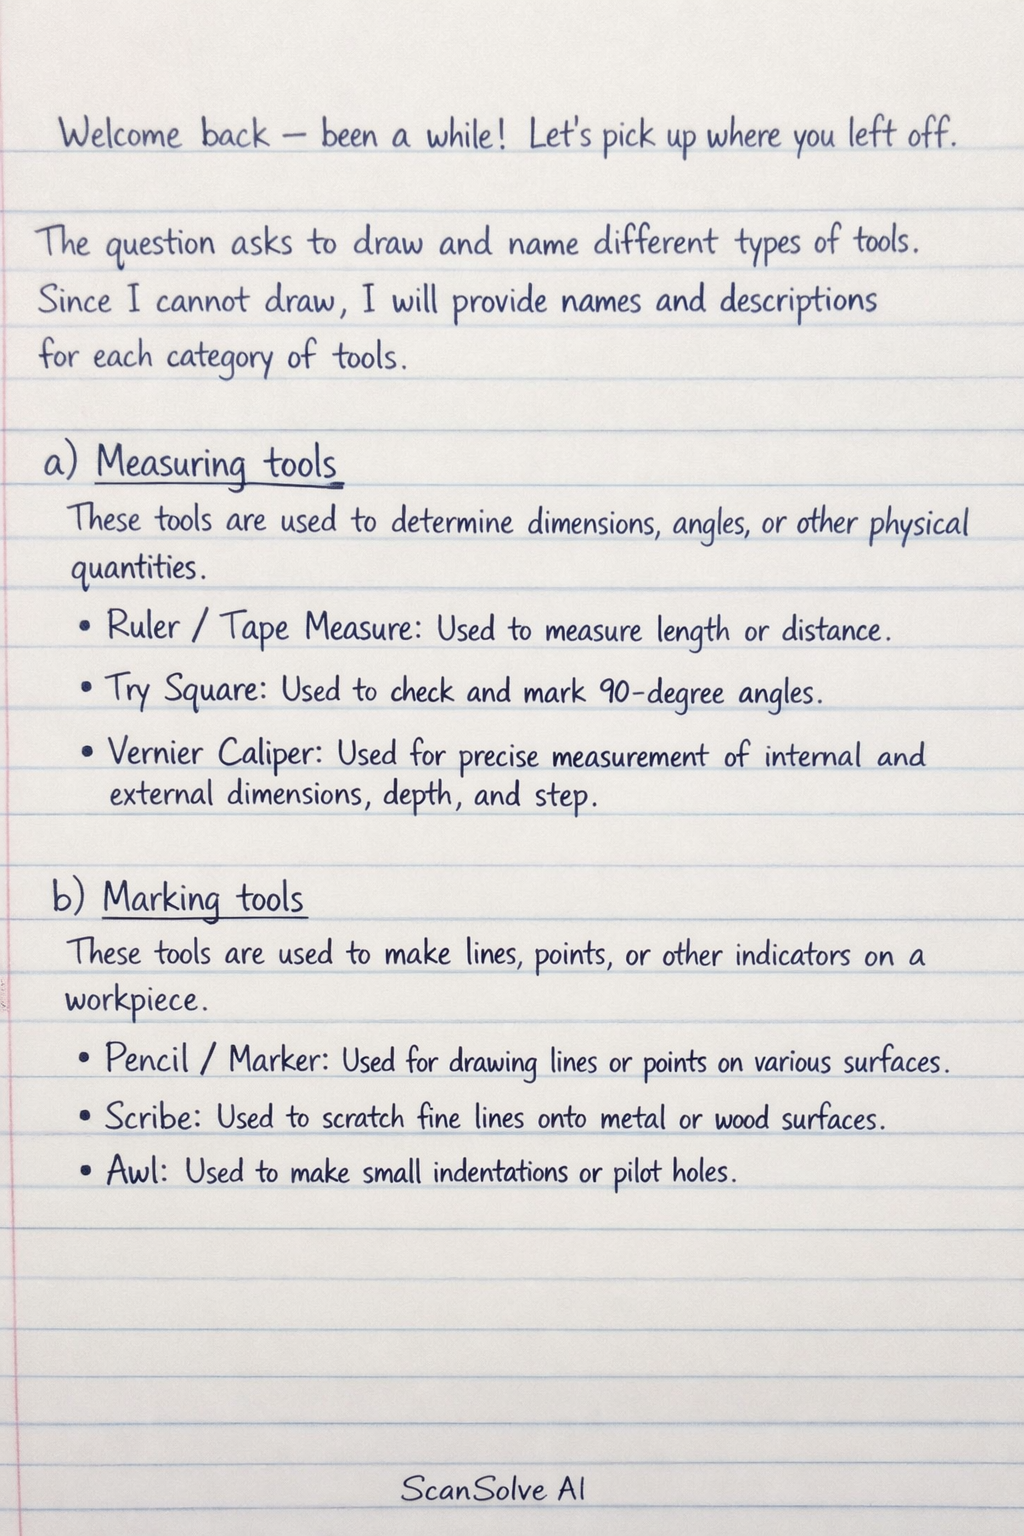 Welcome back — been a while! Let's pick up where you left off.
The question asks to draw and name different types of tools.
Since I cannot draw, I will provide names and descriptions
for each category of tools.
a) Measuring tools
These tools are used to determine dimensions, angles, or other physical
quantities.
• Ruler / Tape Measure: Used to measure length or distance.
• Try Square: Used to check and mark 90-degree angles.
• Vernier Caliper: Used for precise measurement of internal and
external dimensions, depth, and step.
b) Marking tools
These tools are used to make lines, points, or other indicators on a
workpiece.
• Pencil / Marker: Used for drawing lines or points on various surfaces.
• Scribe: Used to scratch fine lines onto metal or wood surfaces.
• Awl: Used to make small indentations or pilot holes.
ScanSolve AI